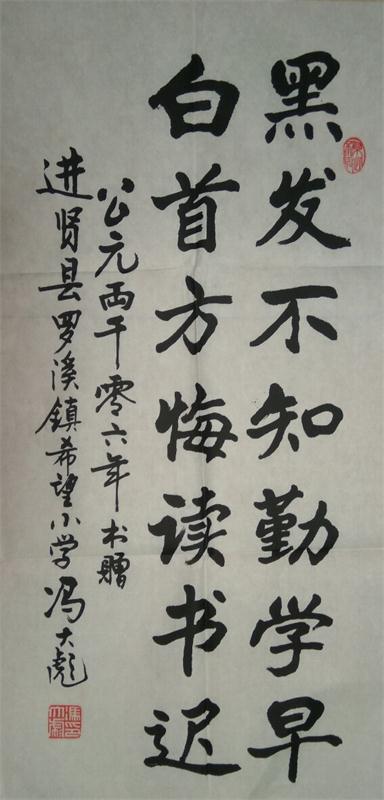 黑发不知勤学早
白首方悔读书迟
公元两千零六年书赠
进贤县罗溪镇希望小学冯大彪